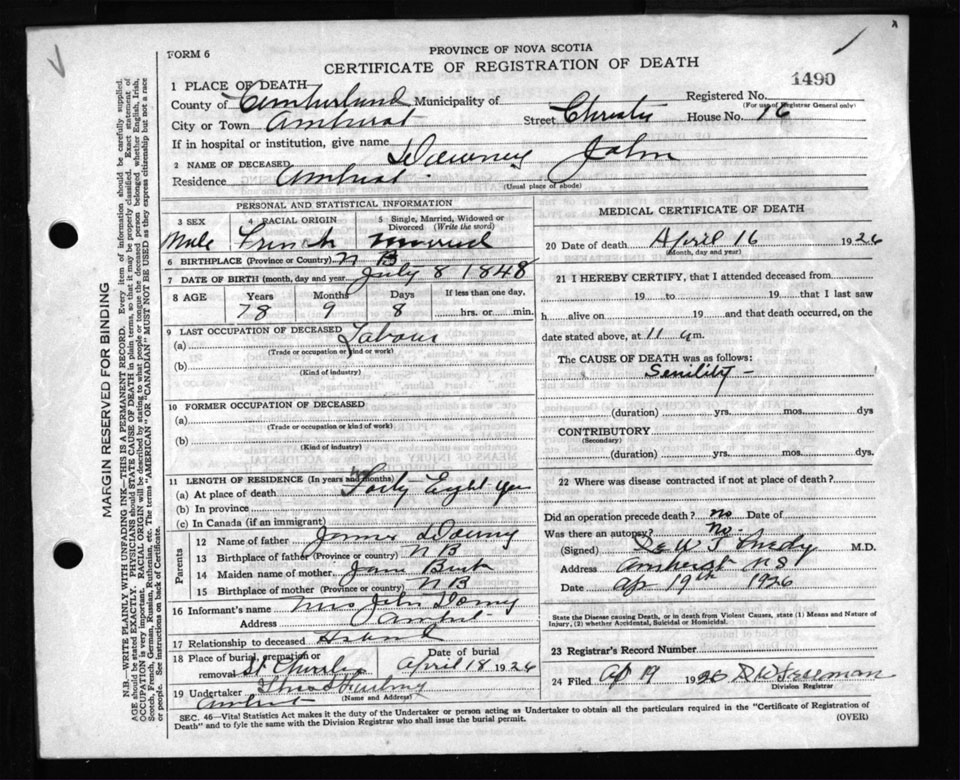 FORM 6
PROVINCE OF NOVA SCOTIA
CERTIFICATE OF REGISTRATION OF DEATH
1490
1 PLACE OF DEATH
County of Cumberland Municipality of Registered No.
(For use of Registrar General only)
City or Town Amherst Street Christie House No. 16
If in hospital or institution, give name
2 NAME OF DECEASED Downey John
Residence Amherst
(Usual place of abode)
PERSONAL AND STATISTICAL INFORMATION
3 SEX 4 RACIAL ORIGIN 5 Single, Married, Widowed or Divorced (Write the word)
Male French Married
6 BIRTHPLACE (Province or Country) N B
7 DATE OF BIRTH (month, day and year) July 8 1848
8 AGE Years Months Days If less than one day,
78 9 8 hrs. or min.
9 LAST OCCUPATION OF DECEASED
(a) Labour
(Trade or occupation or kind or work)
(b)
(Kind of industry)
10 FORMER OCCUPATION OF DECEASED
(a)
(Trade or occupation or kind of work)
(b)
(Kind of industry)
11 LENGTH OF RESIDENCE (In years and months)
(a) At place of death Forty Eight
(b) In province
(c) In Canada (if an immigrant)
Parents
12 Name of father James
13 Birthplace of father (Province or country) N B
14 Maiden name of mother Jane
15 Birthplace of mother (Province or country) N B
16 Informant's name Mrs John
Address
17 Relationship to deceased
18 Place of burial, cremation or removal St Charles Date of burial April 18 1926
19 Undertaker
(Name and Address)
Amherst
MEDICAL CERTIFICATE OF DEATH
20 Date of death April 16 1926
(Month, day and year)
21 I HEREBY CERTIFY, that I attended deceased from
19 to 19 that I last saw
h alive on 19 and that death occurred, on
date stated above, at 11 a m.
The CAUSE OF DEATH was as follows:
Senility -
(duration) yrs. mos. dys
CONTRIBUTORY
(Secondary)
(duration) yrs. mos. dys.
22 Where was disease contracted if not at place of death?
Did an operation precede death? no Date of
Was there an autopsy? No.
(Signed) M.D.
Address Amherst N S
Date Ap 19th 1926
State the Disease causing Death, or in death from Violent Causes, state (1) Means and Nature of
Injury, (2) whether Accidental, Suicidal or Homicidal.
23 Registrar's Record Number
24 Filed Ap 19 1926
Division Registrar
SEC. 46—Vital Statistics Act makes it the duty of the Undertaker or person acting as Undertaker to obtain all the particulars required in the "Certificate of Registration of
Death" and to fyle the same with the Division Registrar who shall issue the burial permit.
(OVER)
MARGIN RESERVED FOR BINDING
N.B.—WRITE PLAINLY WITH UNFADING INK—THIS IS A PERMANENT RECORD. Every item of information should be carefully supplied.
AGE should be stated EXACTLY. PHYSICIANS should STATE CAUSE OF DEATH in plain terms, so that it may be properly classified. Exact statement of
OCCUPATION is very important. RACIAL ORIGIN will be described by stating to what people or tongue the deceased person belonged whether English, Irish,
Scotch, French, German, Russian, Ruthenian, etc. The terms "AMERICAN" OR "CANADIAN" MUST NOT BE USED as they express citizenship but not a race
or people. See instructions on back of Certificate.